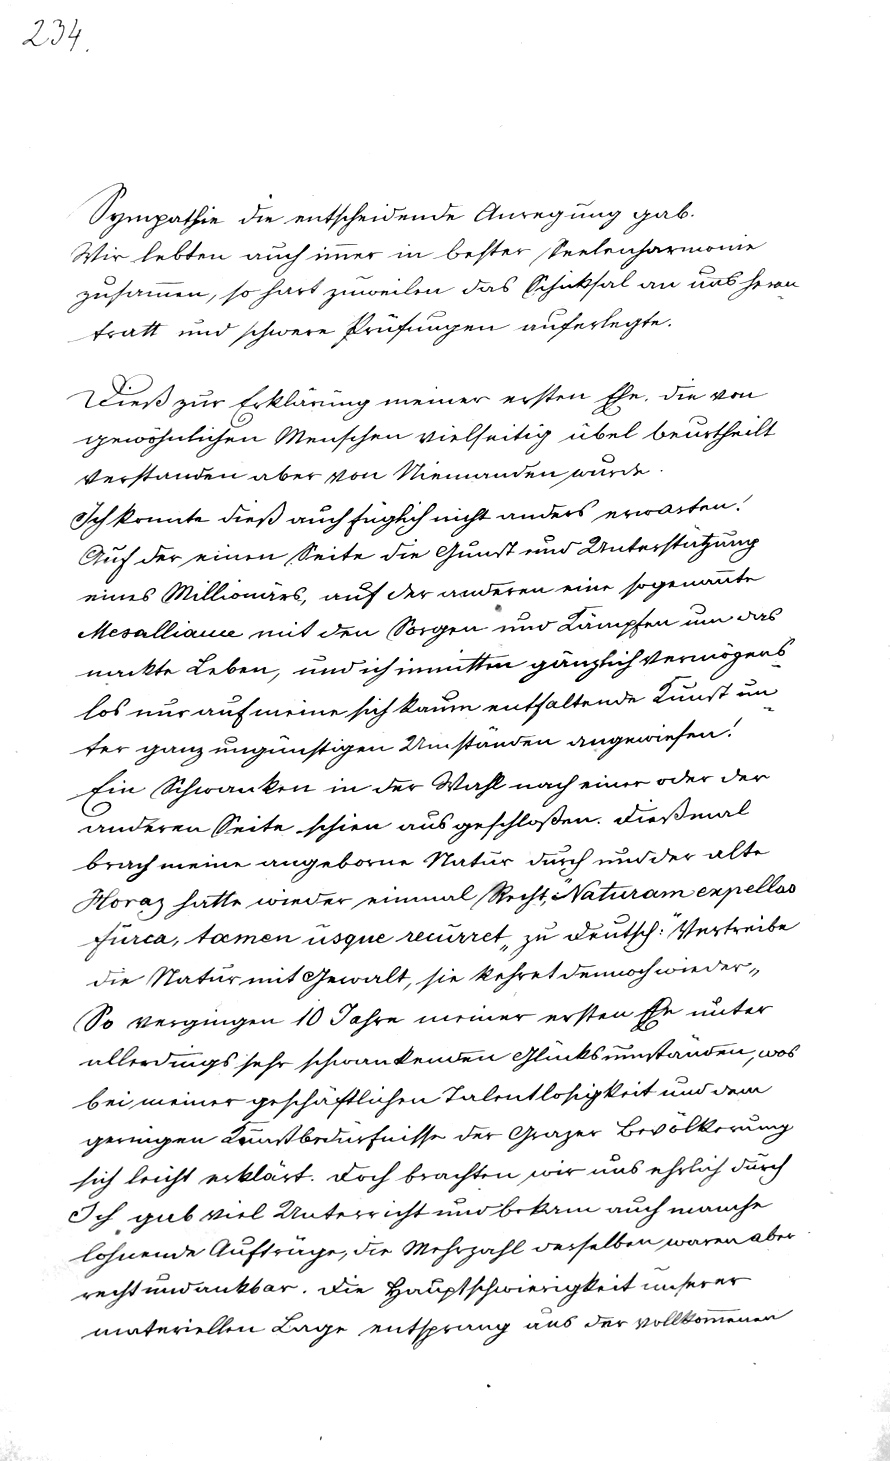 234.
Sympathie die entscheidende Anregung gab.
Wir lebten auch im̅er in bester Seelenharmonie
zusam̅en, so hart zuweilen das Schicksal an uns heran
tratt und schwere Prüfungen auferlegte.
Dieß zur Erklärung meiner ersten Ehe, die von
gewöhnlichen Menschen vielseitig übel beurtheilt
verstanden aber von Niemanden wurde.
Ich konnte dieß auch füglich nicht anders erwarten!
Auf der einen Seite die Gunst und Unterstützung
eines Millionärs, auf der anderen eine sogenan̅te
Mesalliance mit den Sorgen und Kämpfen um das
nackte Leben, und ich inmitten gänzlich vermögens
los nur auf meine sich kaum entfaltende Kunst un
ter ganz ungünstigen Umständen angewiesen!
Ein Schwanken in der Wahl nach einer oder der
anderen Seite schien ausgeschloßen. Dießmal
brach meine angeborne Natur durch und der alte
Horaz hatte wieder einmal Recht, "Naturam expellas
furca, tamen usque recurret„ zu Deutsch: "Vertreibe
die Natur mit Gewalt, sie kehret dennoch wieder„
So vergingen 10 Jahre meiner ersten Ehe unter
allerdings sehr schwankenden Glücksumständen, was
bei meiner geschäftlichen Talentlosigkeit und dem
geringen Kunstbedürfnisse der Grazer Bevölkerung
sich leicht erklärt. Doch brachten wir uns ehrlich durch
Ich gab viel Unterricht und bekam auch manche
lohnende Aufträge, die Mehrzahl derselben waren aber
recht undankbar. Die Hauptschwierigkeit unserer
materiellen Lage entsprang aus der vollkom̅enen